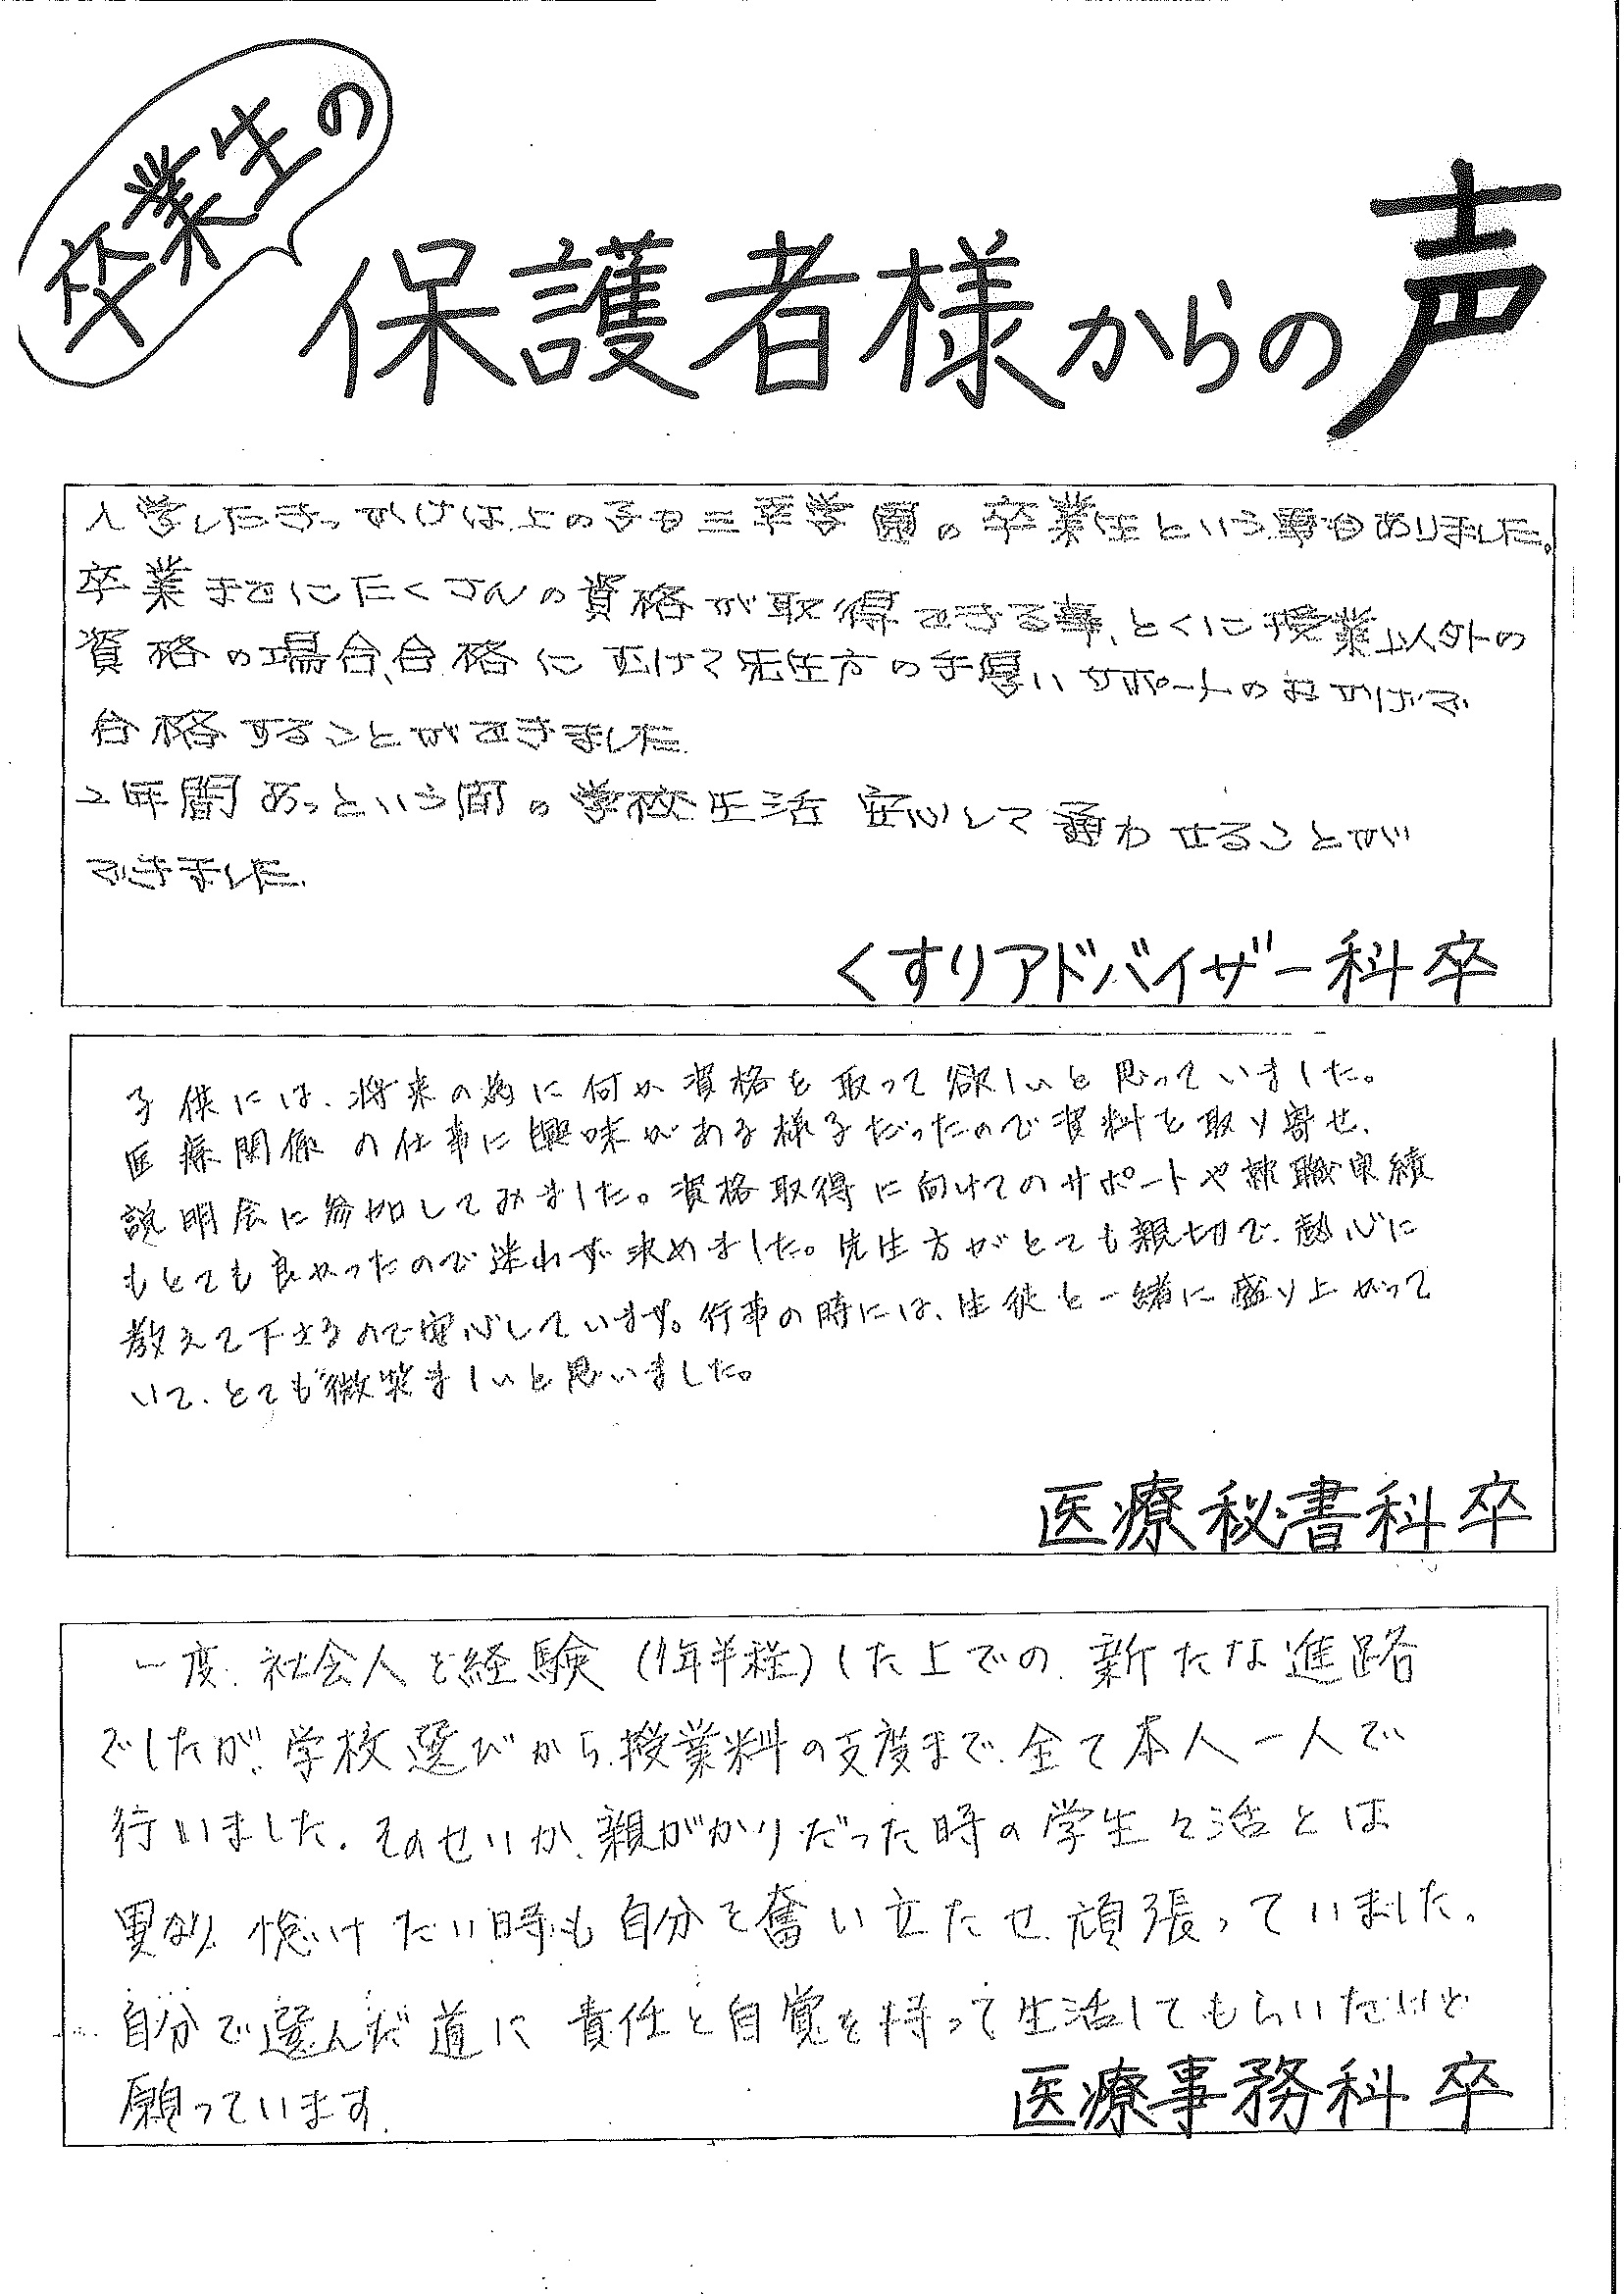 卒業生の
保護者様からの声
入学したきっかけは上の子も三幸学園の卒業生という事もありました。
卒業までにたくさんの資格が取得できる事、とくに授業以外の
資格の場合、合格に向けて先生方の手厚いサポートのおかげで
合格することができました
2年間あっという間の学校生活 安心して通わせることが
できました。
くすりアドバイザー科卒
子供には、将来の為に何か資格を取って欲しいと思っていました。
医療関係の仕事に興味がある様子だったので資料を取り寄せ、
説明会に参加してみました。資格取得に向けてのサポートや就職実績
もとても良かったので迷わず決めました。先生方がとても親切で、熱心に
教えて下さるので安心しています。行事の時には、生徒と一緒に盛り上がって
いて、とても微笑ましいと思いました。
医療秘書科卒
一度、社会人を経験(1年半程)した上での、新たな進路
でしたが、学校選びから、授業料の支度まで、全て本人一人で
行いました。そのせいか、親がかりだった時の学生生活とは
異なり、怠けたい時も自分を奮い立たせ、頑張っていました。
自分で選んだ道に責任と自覚を持って生活してもらいたいと
願っています。
医療事務科卒